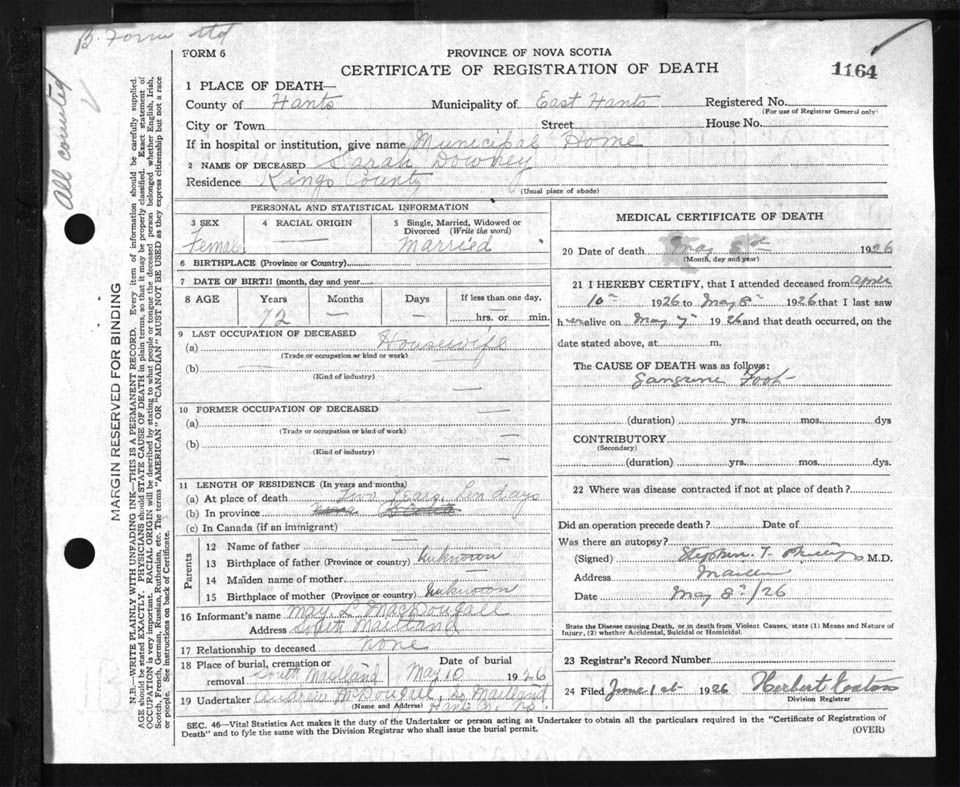 B. Form
All counted
FORM 6
PROVINCE OF NOVA SCOTIA
CERTIFICATE OF REGISTRATION OF DEATH
1164
1 PLACE OF DEATH—
County of Hants Municipality of East Hants Registered No.
(For use of Registrar General only)
City or Town Street House No.
If in hospital or institution, give name Municipal Home
2 NAME OF DECEASED Sarah Downey
Residence Kings County
(Usual place of abode)
PERSONAL AND STATISTICAL INFORMATION
3 SEX 4 RACIAL ORIGIN 5 Single, Married, Widowed or Divorced (Write the word)
Female — Married
6 BIRTHPLACE (Province or Country)
7 DATE OF BIRTH (month, day and year)
8 AGE Years Months Days If less than one day,
72 — — hrs. or min.
9 LAST OCCUPATION OF DECEASED
(a) Housewife
(Trade or occupation or kind or work)
(b)
(Kind of industry)
10 FORMER OCCUPATION OF DECEASED
(a)
(Trade or occupation or kind of work)
(b)
(Kind of industry)
11 LENGTH OF RESIDENCE (In years and months)
(a) At place of death Two Years, Ten days
(b) In province
(c) In Canada (if an immigrant)
Parents
12 Name of father
13 Birthplace of father (Province or country) Unknown
14 Maiden name of mother
15 Birthplace of mother (Province or country) Unknown
16 Informant's name May L MacDougall
Address South Maitland
17 Relationship to deceased none
18 Place of burial, cremation or removal South Maitland Date of burial May 10 1926
19 Undertaker Andrew McDougall, So. Maitland
(Name and Address) Hants Co. N.S.
MEDICAL CERTIFICATE OF DEATH
20 Date of death May 8th 1926
(Month, day and year)
21 I HEREBY CERTIFY, that I attended deceased from April
10th 1926 to May 8th 1926 that I last saw
her alive on May 7th 1926 and that death occurred, on the
date stated above, at m.
The CAUSE OF DEATH was as follows:
Gangrene Foot
(duration) yrs. mos. dys
CONTRIBUTORY
(Secondary)
(duration) yrs. mos. dys.
22 Where was disease contracted if not at place of death?
Did an operation precede death? Date of
Was there an autopsy?
(Signed) Stephen T. Phillips M.D.
Address
Date May 8th/26
State the Disease causing Death, or in death from Violent Causes, state (1) Means and Nature of
Injury, (2) whether Accidental, Suicidal or Homicidal.
23 Registrar's Record Number
24 Filed June 1st 1926 Herbert
Division Registrar
SEC. 46—Vital Statistics Act makes it the duty of the Undertaker or person acting as Undertaker to obtain all the particulars required in the "Certificate of Registration of
Death" and to fyle the same with the Division Registrar who shall issue the burial permit.
(OVER)
MARGIN RESERVED FOR BINDING
N.B.—WRITE PLAINLY WITH UNFADING INK—THIS IS A PERMANENT RECORD. Every item of information should be carefully supplied.
AGE should be stated EXACTLY. PHYSICIANS should STATE CAUSE OF DEATH in plain terms, so that it may be properly classified. Exact statement of
OCCUPATION is very important. RACIAL ORIGIN will be described by stating to what people or tongue the deceased person belonged whether English, Irish,
Scotch, French, German, Russian, Ruthenian, etc. The terms "AMERICAN" OR "CANADIAN" MUST NOT BE USED as they express citizenship but not a race
or people. See instructions on back of Certificate.